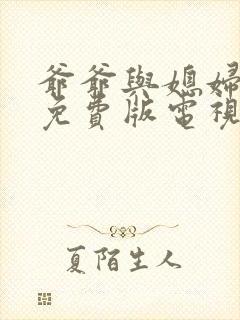 爺爺與媳婦
免費版電視
夏陌生人